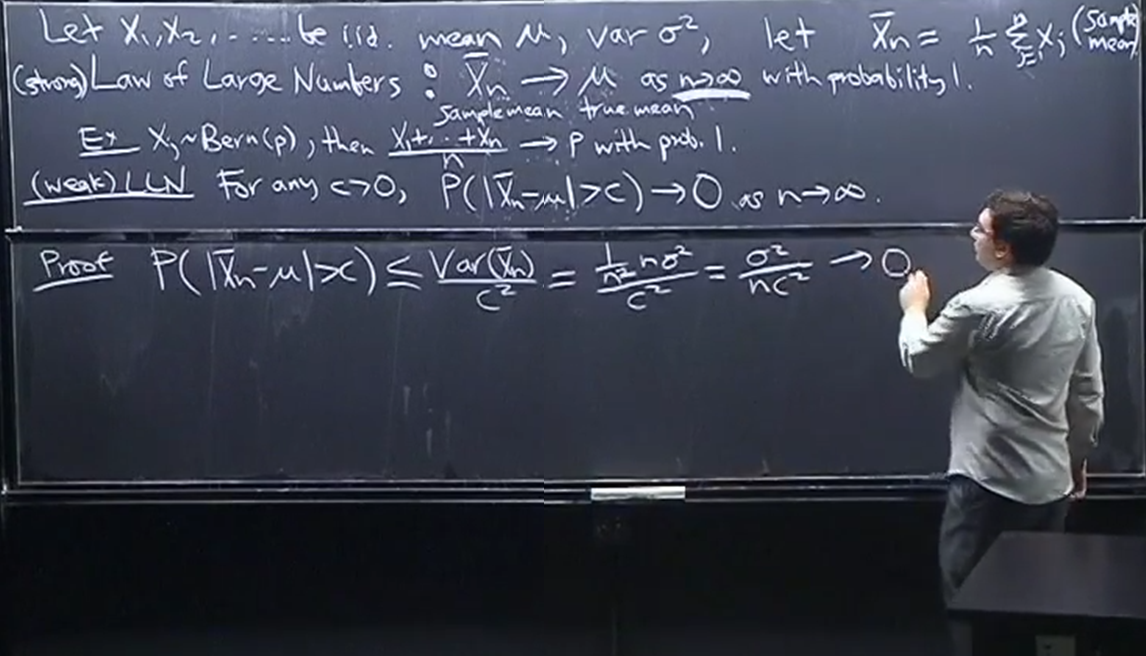 Let X₁,X₂,.....be i.i.d. mean μ, var σ², let X̄n = 1/n Σⁿⱼ₌₁ Xⱼ (sample mean)
(strong) Law of Large Numbers : X̄n → μ as n→∞ with probability 1.
sample mean true mean
Ex Xⱼ~Bern(p), then (X₁+...+Xn)/n → p with prob. 1.
(weak) LLN For any c>0, P(|X̄n-μ|>c)→0 as n→∞.
Proof P(|X̄n-μ|>c) ≤ Var(X̄n)/c² = (1/n² nσ²)/c² = σ²/(nc²) → 0